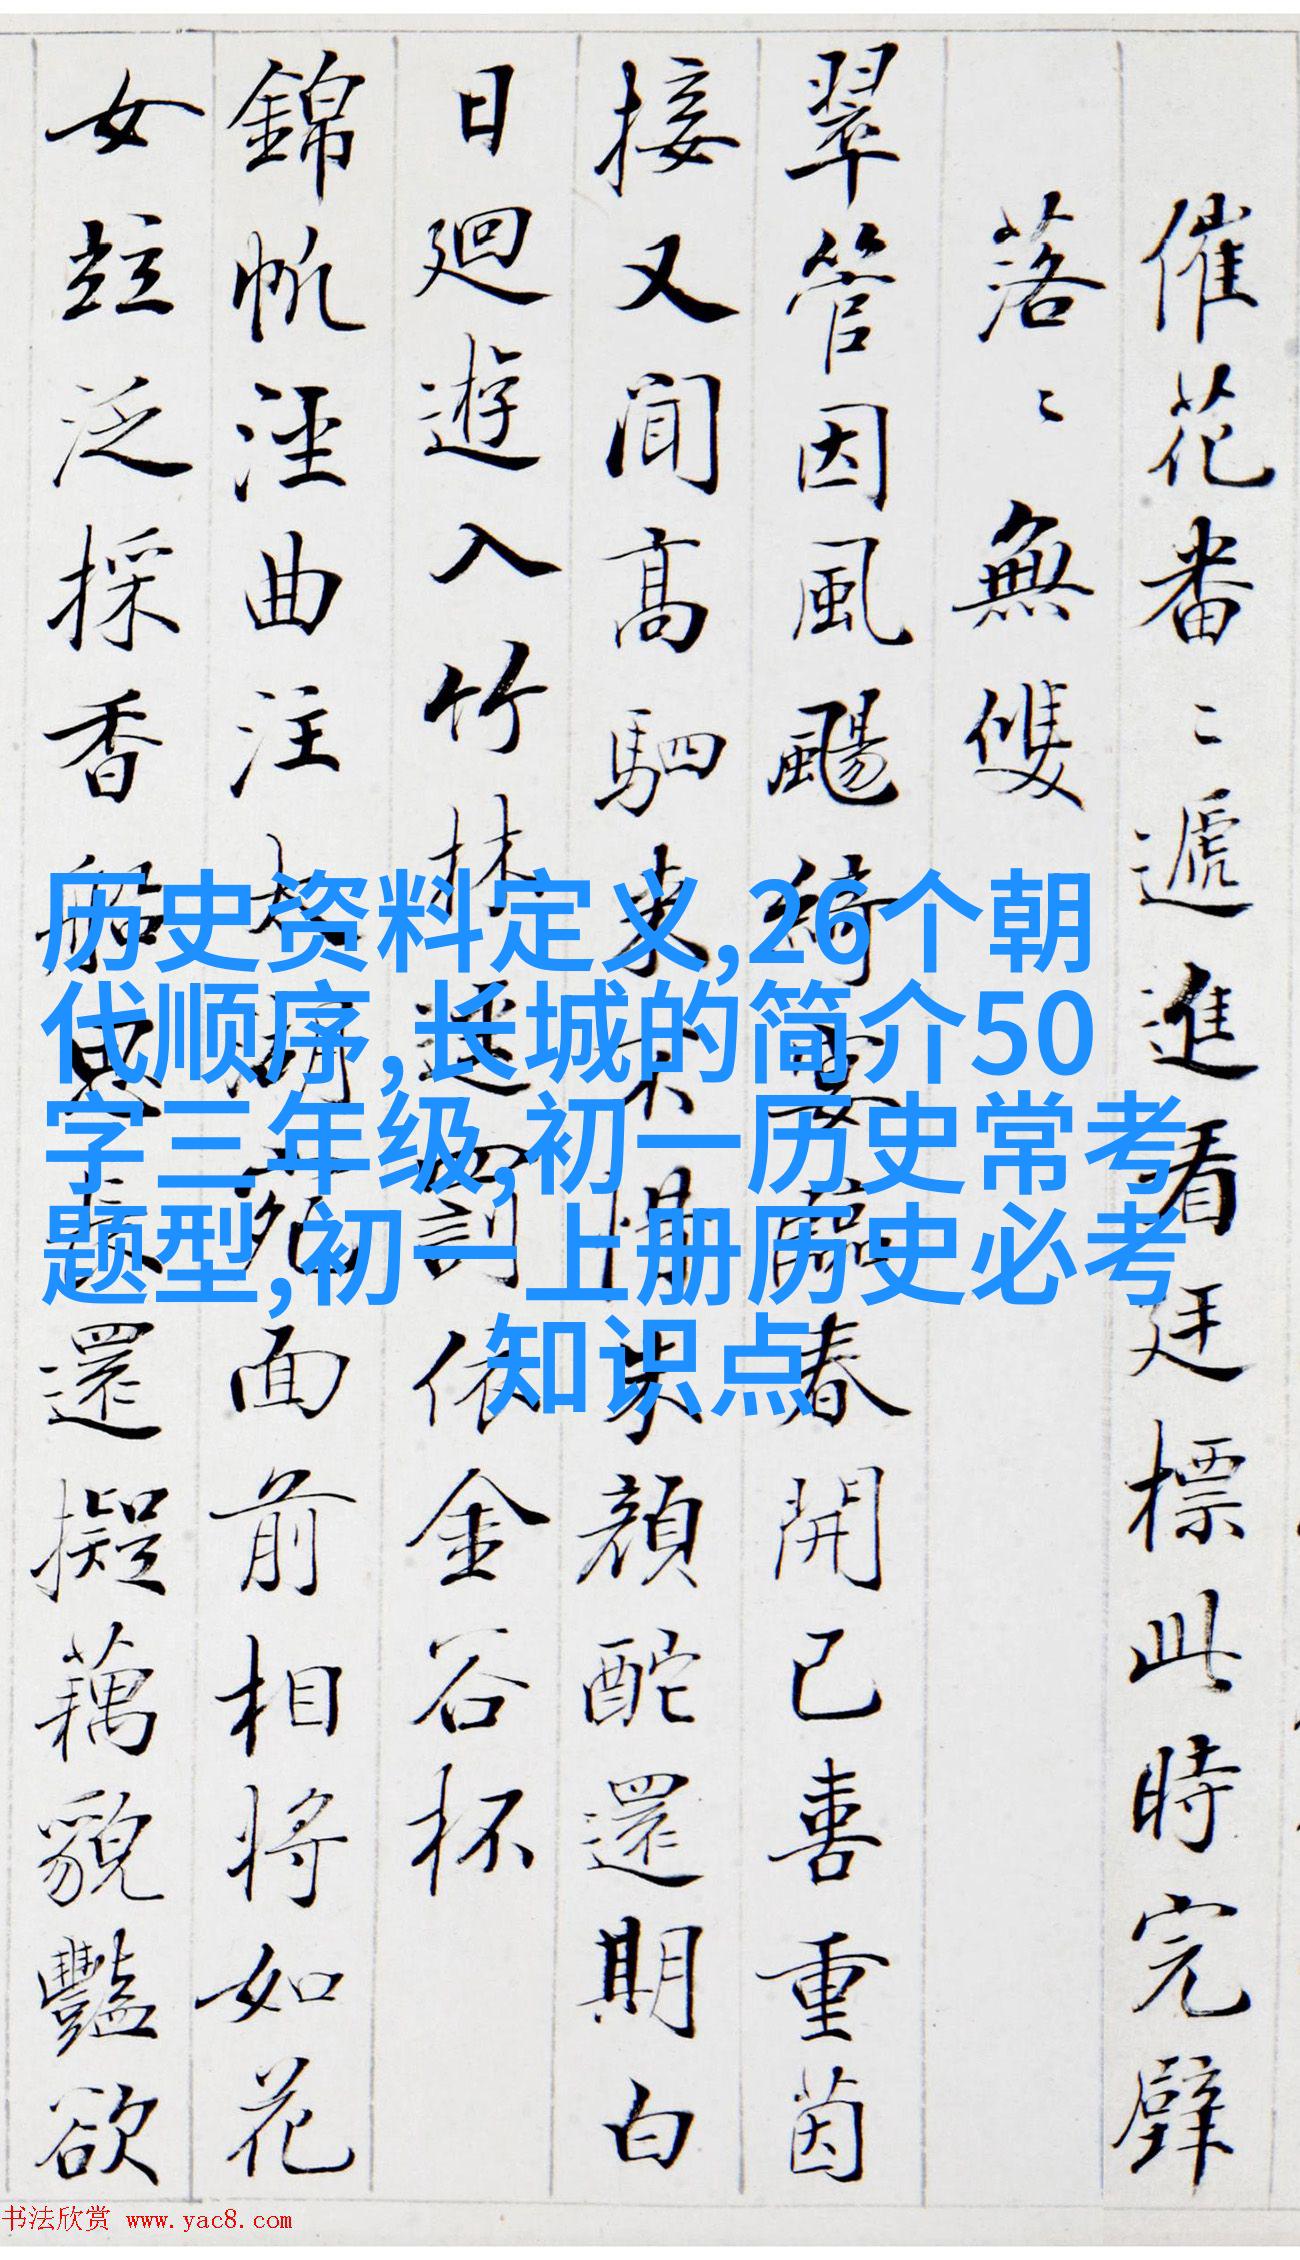 催花番〻遞進看廷標此時完璧
落〻無雙
翠管因風颺綺 春開已喜重茵
接又聞高駟來 顔酡還期白
日迴遊入竹林 罰依金谷杯
錦帆涇曲注 面前相將如花
女竝泛採香船 還擬藕貌豔欲
历史资料定义,26个朝
代顺序,长城的简介50
字三年级,初一历史常考
题型,初一上册历史必考
知识点
书法欣赏 www.yac8.com